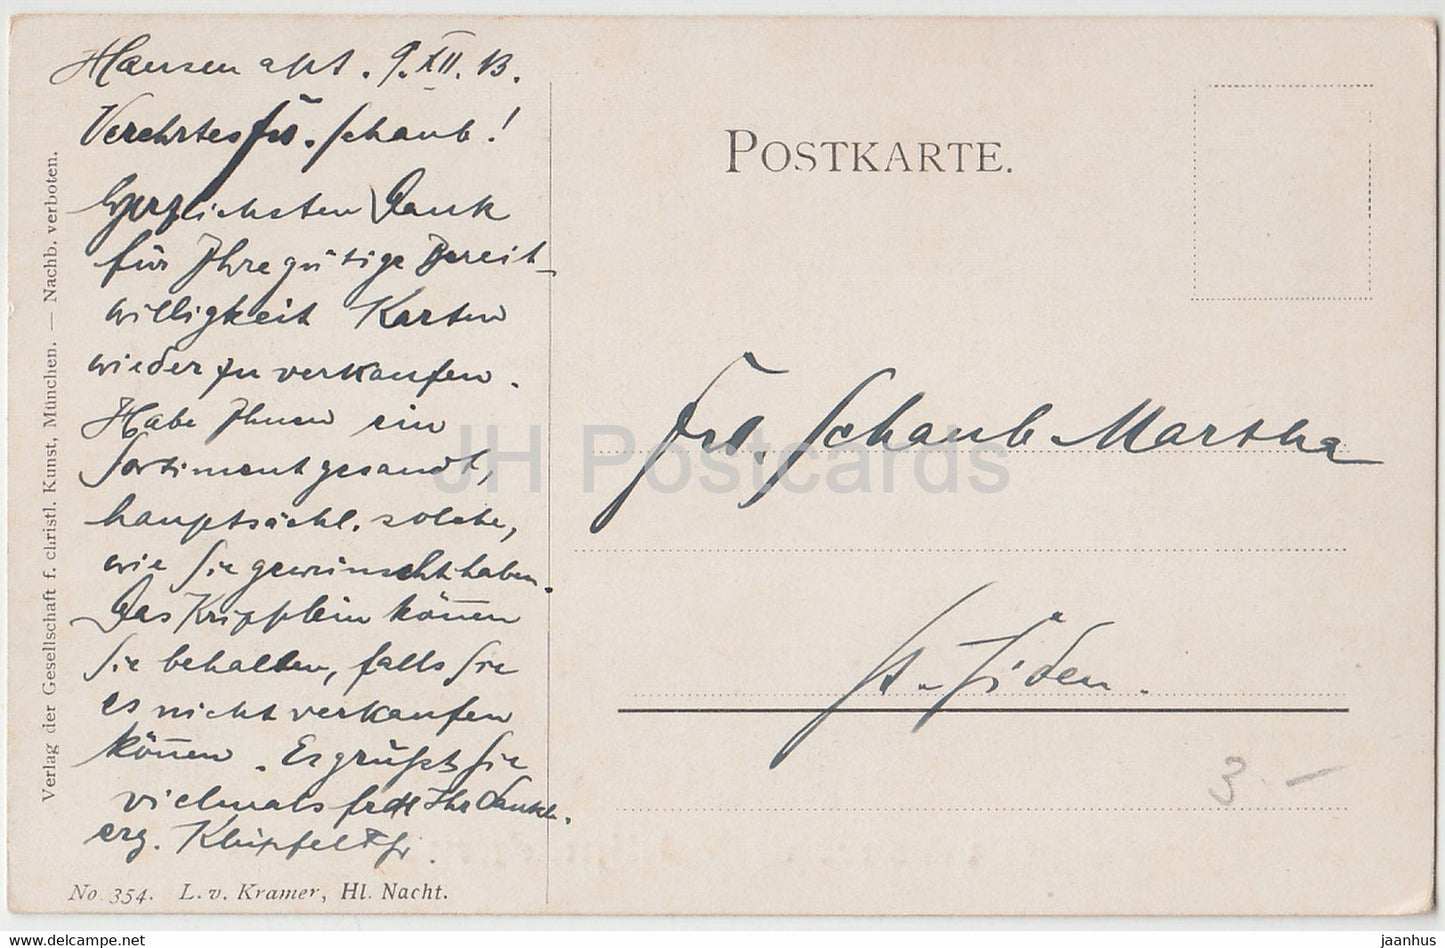 9. XII. 13.
Verehrtes Frl. Schaub!
Herzlichsten Dank
für Ihre gütige Bereit-
willigkeit Karten
wieder zu verkaufen.
Habe Ihnen ein
Sortiment gesandt,
hauptsächl. solche,
wie Sie gewünscht haben.
Das Kripplein können
Sie behalten, falls Sie
es nicht verkaufen
können. Es grüßt Sie
vielmals Ihr dankb.
erg.
No 354. L. v. Kramer, Hl. Nacht.
Verlag der Gesellschaft f. christl. Kunst, München. — Nachb. verboten.
POSTKARTE.
Frl. Schaub Martha
St. Fiden.
3.–
JH Postcards
jaanhus